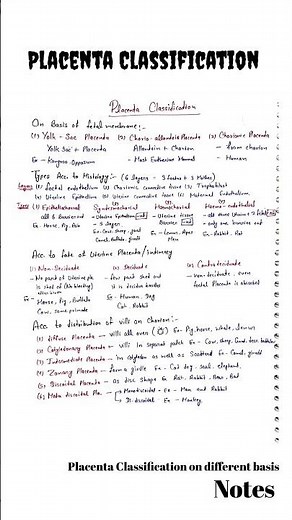 PLACENTA CLASSIFICATION
Placenta Classification
On Basis of fetal membrane:-
(1) Yolk-Sac Placenta (2) Chorio-allantoic Placenta (3) Chorionic Placenta
Yolk Sac + Placenta Allantoin + Chorion - from chorion
Ex - Kangroo Oppossum - Most Eutherian Mammal - Humans
Types Acc. to Histology:- (6 layers - 3 foetus + 3 Mother)
Layers (1) foetal endothelium (2) Chorionic connective tissue (3) Trophoblast
(4) Uterine Epithelium (5) Uterine Connective tissue (6) Maternal Endothelium
Types (1) Epitheliochorial Syndesmochorial Hemochorial Hemo-endothelial
all 6 Barriers - Uterine Epithelium - Uterine tissue
Ex- Horse, Pig, Ass - 5 layer - only one
Ex- Cow, sheep, goat Ex- Lemur, Apes Ex- Rabbit, Rat
Camel, Buffalo, giraffe Man
Acc to fate of Uterine Placenta/Intimacy
(1) Non-Deciduate (2) Deciduate (3) Contradeciduate
- No part of Uterine pla - few part shed out - Non deciduate - even
is shed of (No bleeding) it is decidua basalis foetal Placenta is absorbed
Ex - Horse, Pig, Buffalo Ex- Human, Dog
Cow, some primate Cat, Rabbit
Acc. to distribution of villi on Chorion:-
(1) diffuse Placenta - villi all over Ex- Pig, horse, whale, lemurs
(2) Cotyledonary Placenta - villi in separate patch Ex- Cow, sheep, Goat, deer, buffalo
(3) Intermediate Placenta - in Cotyledon as well as Scattered Ex- Camel, giraffe
(4) Zonary Placenta - form a girdle Ex- Cat, dog, seal, elephant,
(5) Discoidal Placenta - as disc shape Ex Rat, Rabbit, Bear, Bat
(6) Meta discoidal Pla. - Monodiscoidal - Ex - Man and Rabbit
Bi-discoidal Ex - Monkey
Placenta Classification on different basis
Notes